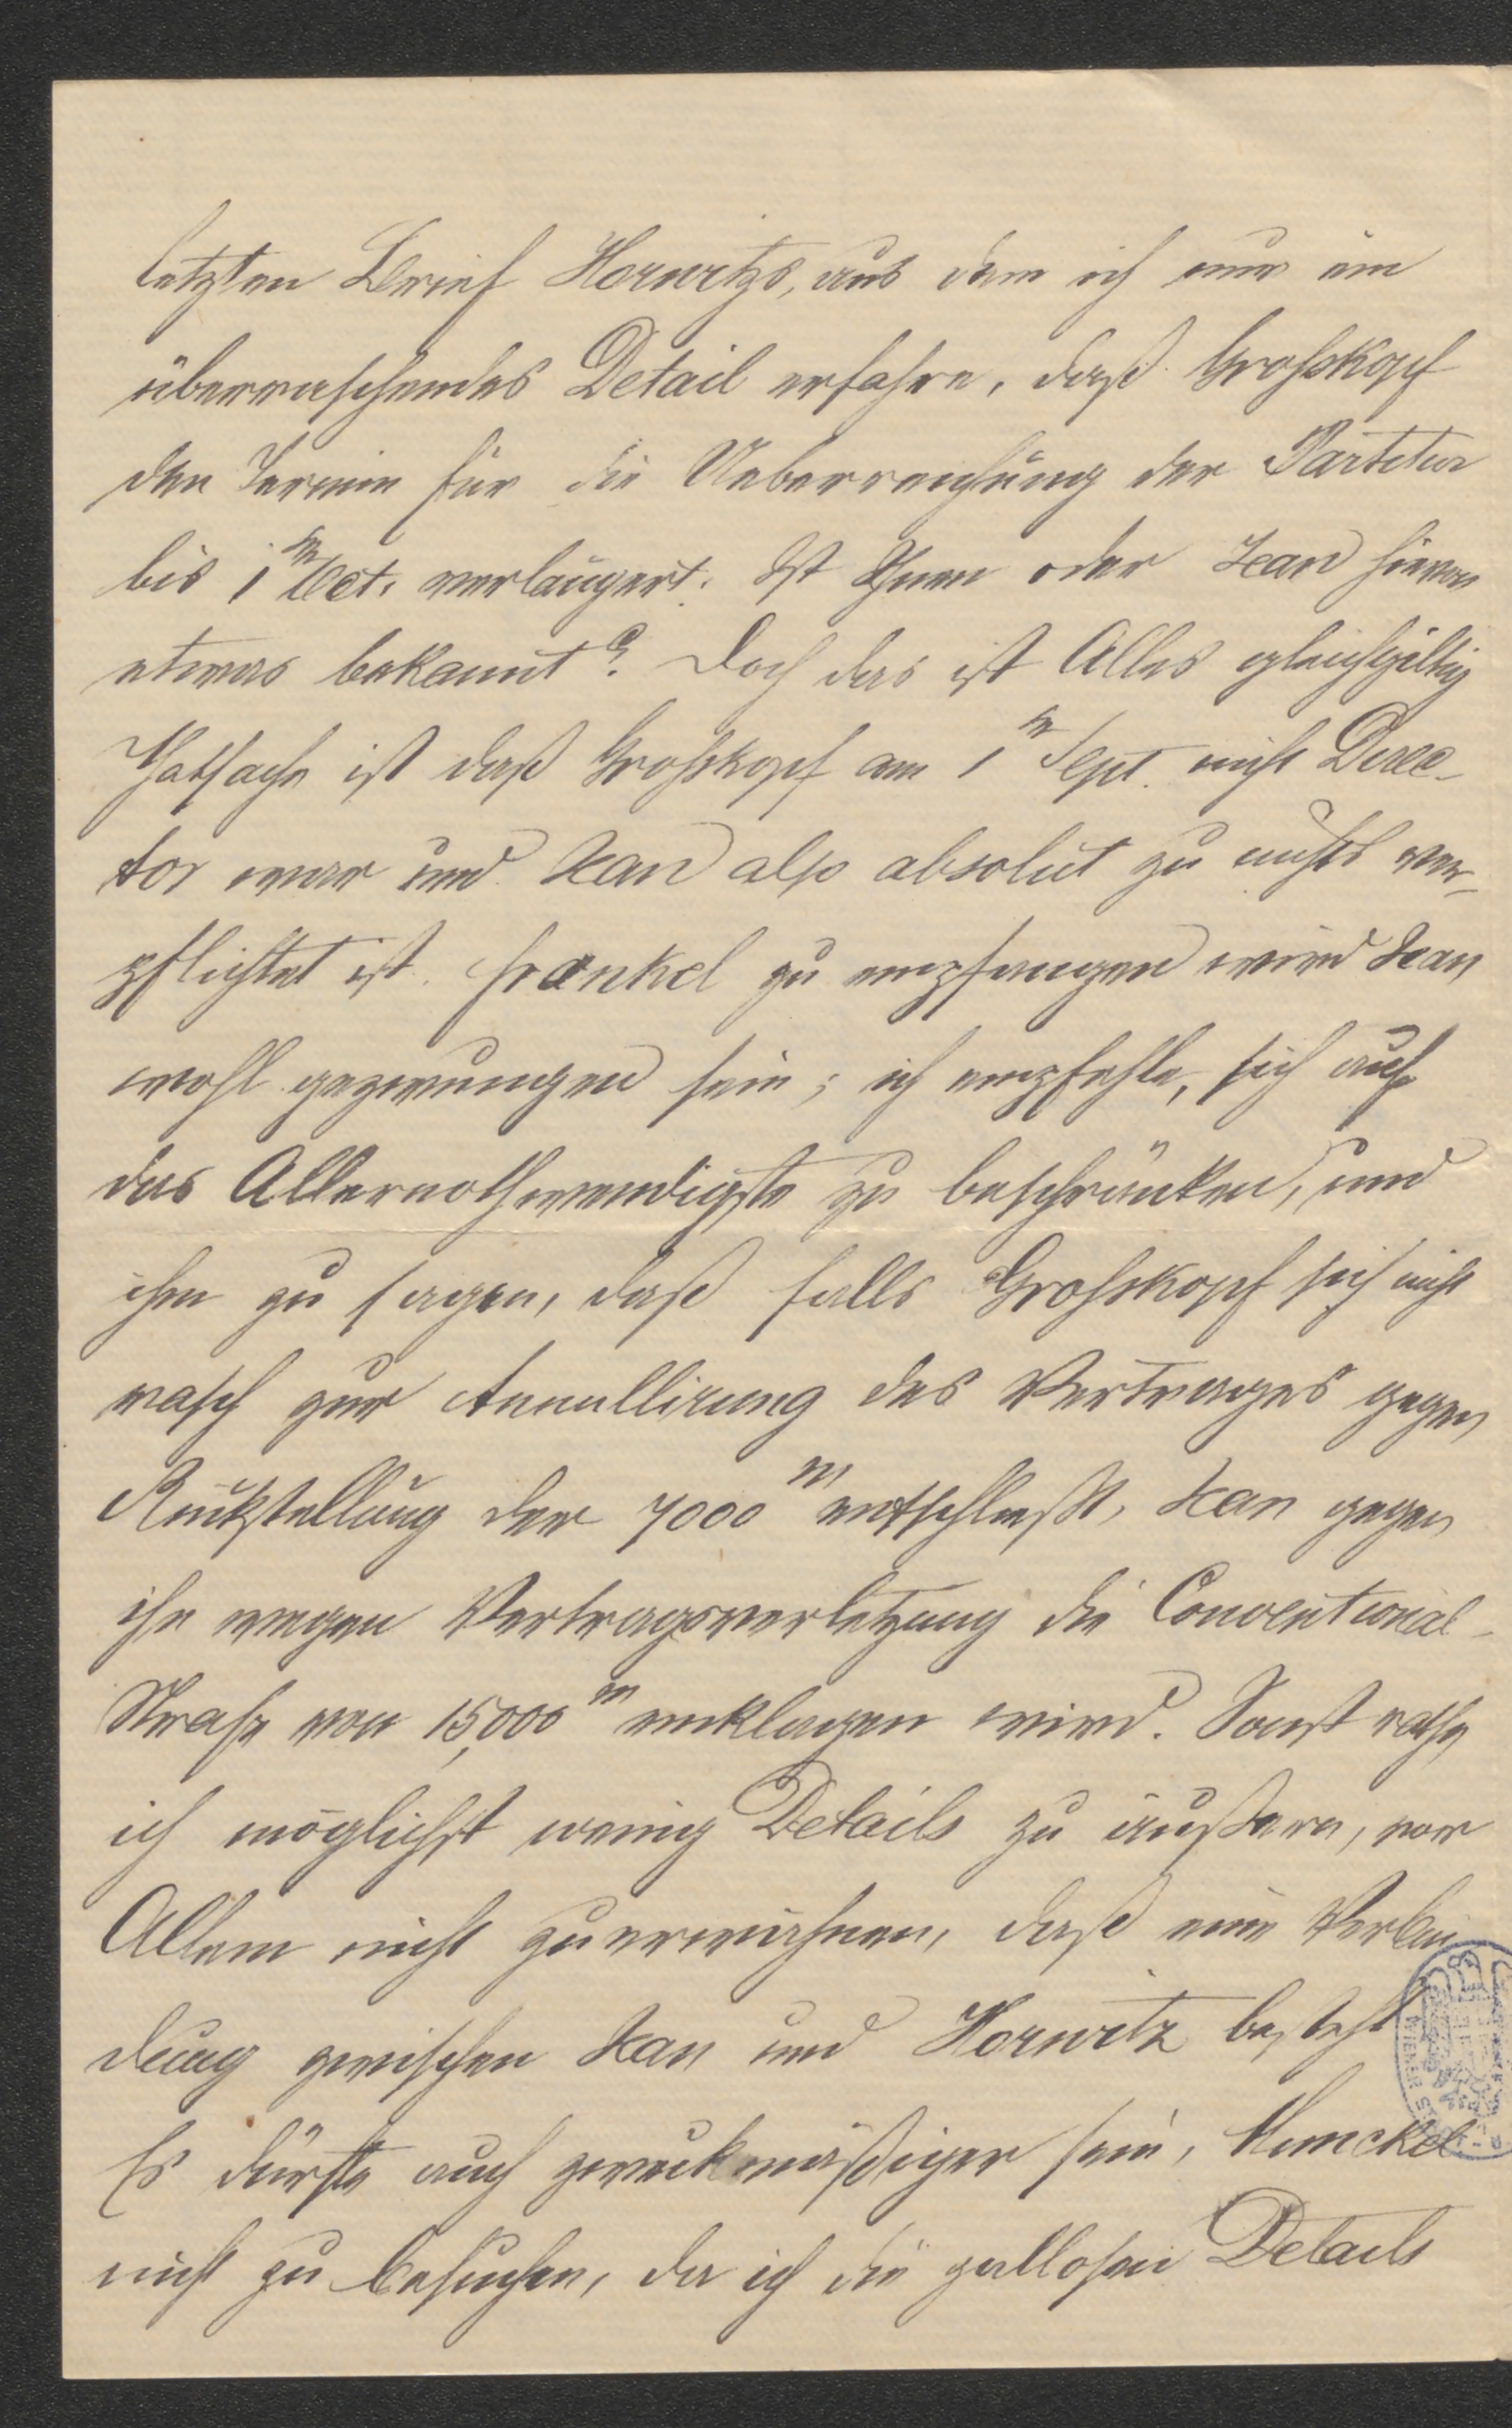 letzten Brief Horwitzs, aus dem ich nur ein
überraschendes Detail erfahre, daß Großkopf
den Termin für die Ueberreichung der Partitur
bis 1ten Oct. verlängert. Ist Ihnen oder Jean hievon
etwas bekannt? Doch das ist Alles gleichgiltig
Thatsache ist daß Großkopf am 1ten Sept. nicht Direc-
tor war und Jean also absolut zu nichts ver-
pflichtet ist. Frankel zu empfangen wird Jean
wohl gezwungen sein; ich empfehle, sich auf
das Allernothwendigste zu beschränken, und
ihm zu sagen, daß falls Großkopf sich nicht
rasch zur Annullirung des Vertrages gegen
Rückstellung der 7000 m entschließt, Jean gegen
ihn wegen Vertragsverletzung die Conventional-
Strafe von 15,000 m einklagen wird. Sonst rathe
ich möglichst wenig Details zu äußern, vor
Allem nicht zu erwähnen, daß eine Verbin
dung zwischen Jean und Horwitz besteht
Es dürfte auch zweckmäßiger sein, Munckel
nicht zu besuchen, da ich die zahllosen Details
WIENER